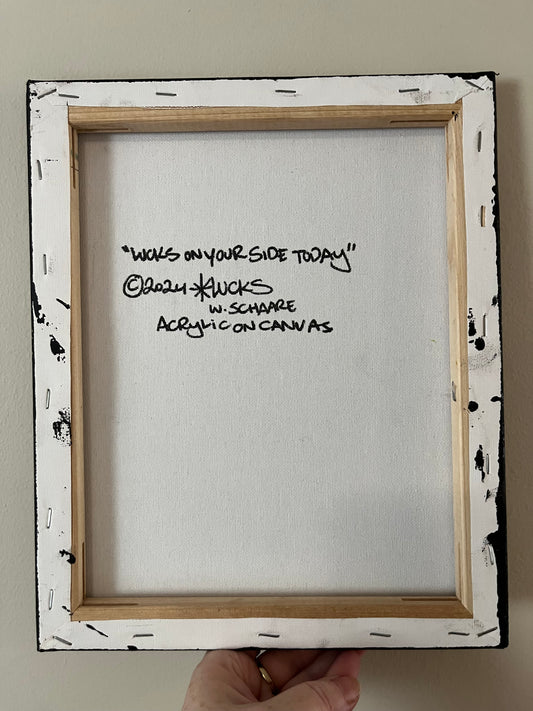 "WCKS ON YOUR SIDE TODAY"
©2024 *WCKS
W. SCHAARE
ACRYLIC ON CANVAS